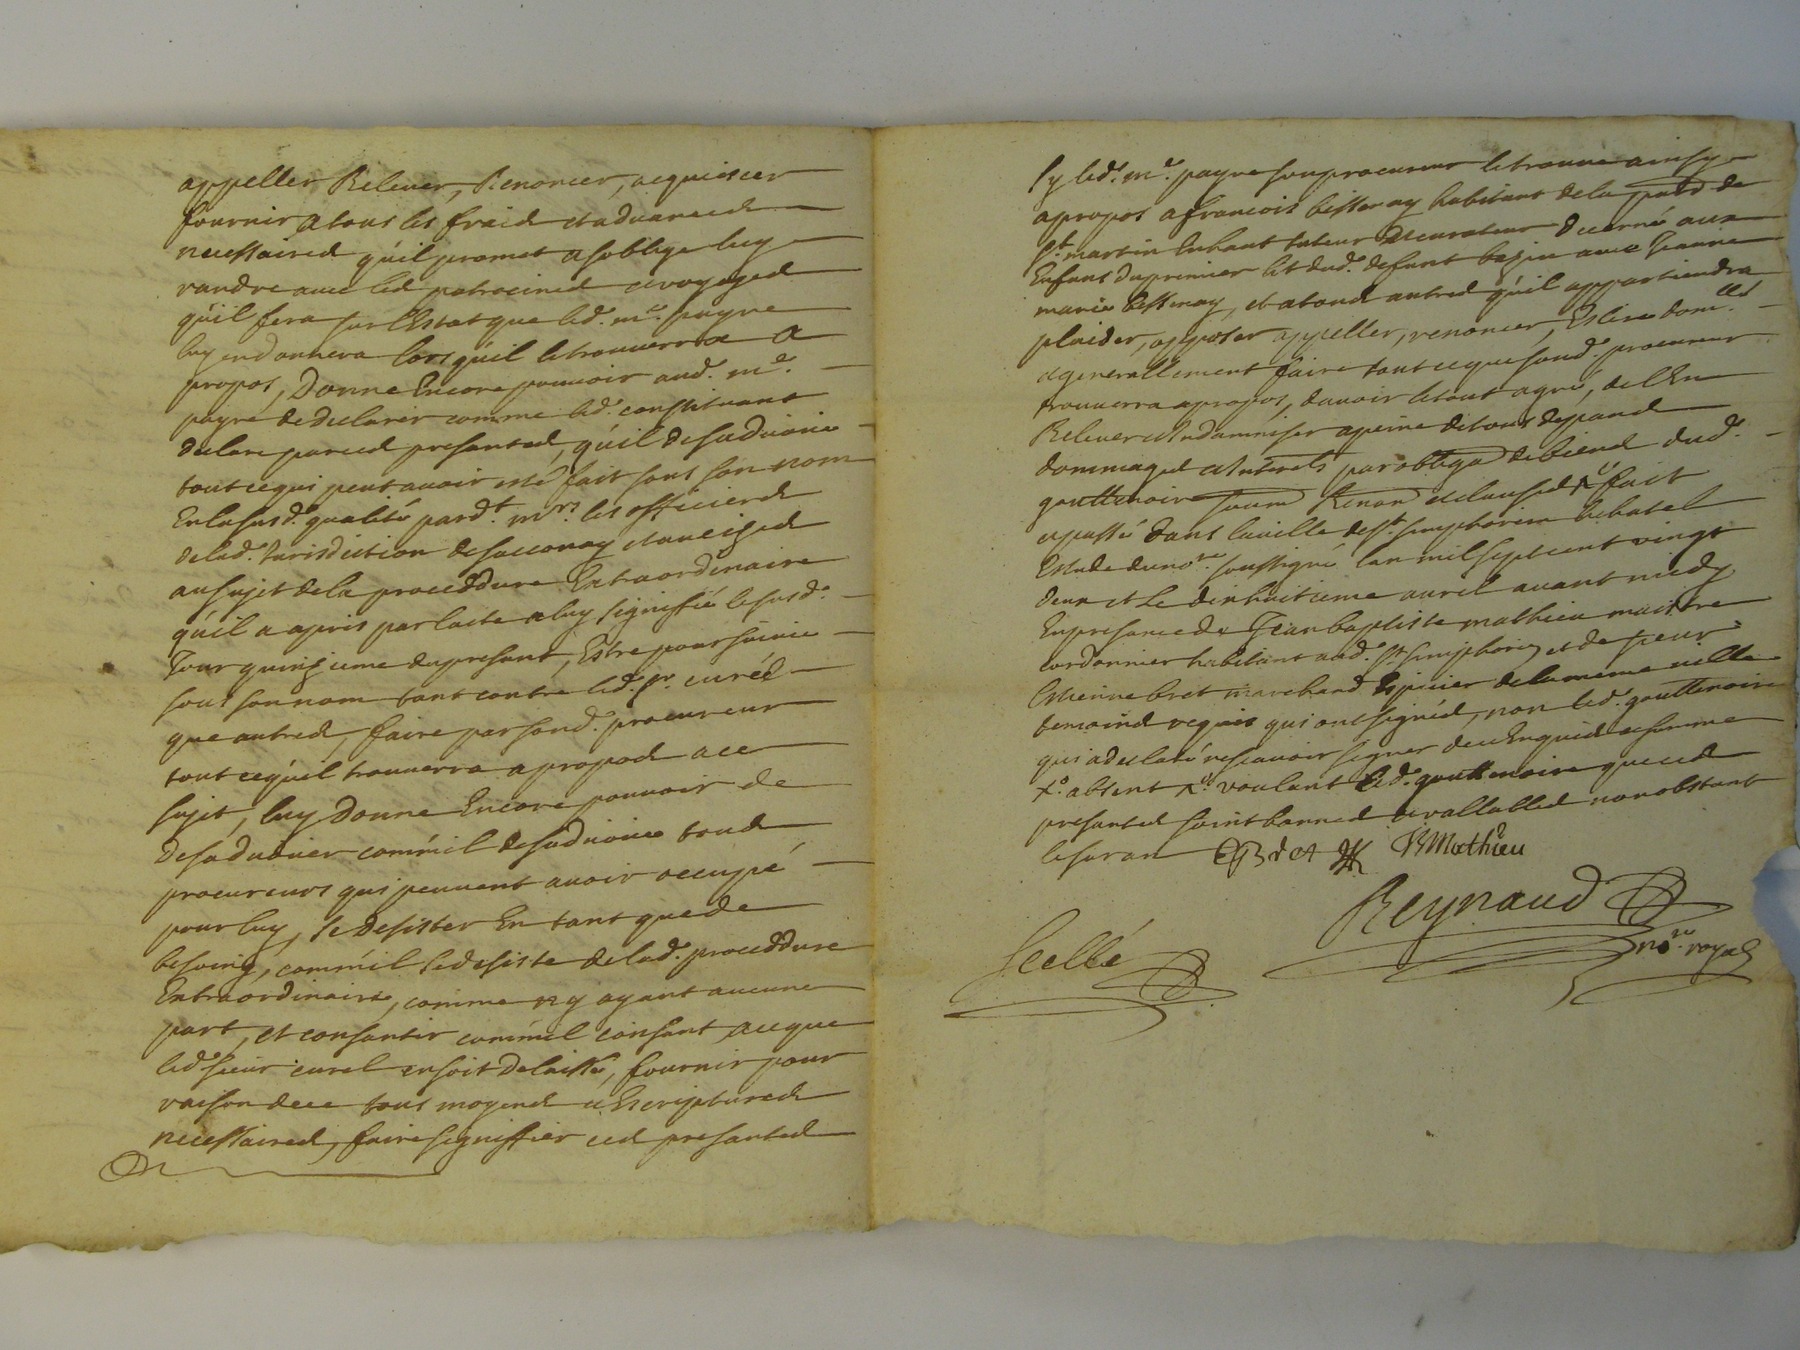 appeller Relever, Renoncer, acquiescer
fournir a tous les fraid et advanced
necessaired quil promet a soblige luy
randre avec led patrocined et voyaged
quil fera sur lestat que led. me. payre
luy en donnera lors quil le trouverra a
propos, Donne Encore pouvoir aud. me.
payre de declarer comme led. constituant
declare par ced presanted, quil desadvoüe
tout ce qui peut avoir esté fait sous son nom
En la susd. qualité pard.t mrs. les officierd
de lad. Jurisdiction de saconay et
au sujet de la proceddure Extraordinaire
quil a apris par lacte a luy signiffié le susd.
Jour quinzieme du presant, Estre poursuivie
sous son nom tant contre led. sr. curél
que autred, faire par sond. procureur
tout ce quil trouverra a propod a ce
sujet, luy Donne Encore pouvoir de
Desadvouer comm'il desadvoüe toud
procureurs qui peuvent avoir occupé
pour luy, se desister En tant que de
besoing, comm'il se desiste de lad. proceddure
Extraordinaire, comme ny ayant aucune
part, et consantir comm'il consant, a ce que
led. sieur curel en soit delaissé, fournir pour
raison de ce tous moyend et Escriptured
necessaired, faire signiffier ced presanted
Sy led. me. payre son procureur le trouve ainsy
a propos a francois bissenay habitant de la
st. martin tuteur et curateur decerné aux
Enfans du premier lit dud. defunt bazin avec Jeanne
marie bissenay, et a toud autred quil appartiendra
plaider, opposer appeller, renoncer, Eslire dom.lles
et generallement faire tout ce que sond. procureur
trouverra a propos, davoir le tout agréé, de lEn
Relever et Indamniser a peine de tous depand
dommaged et Interets par obliga. de biend dud.
gouttenoire soum. Renon. et claused x fait
et passé dans la ville de st. simphorien le chatel
Estude du nore. soussigné lan mil sept cent vingt
deux et Le dix huitieme avril avant midy
En presance de Jean baptiste mathieu maistre
cordonnier habitant aud. st simphorien et de sieur
Estienne bret marchand Espicier de la meme ville
temoind requis qui ont signéd, non led. gouttenoire
qui a declaré ne scavoir signer de ce Enquid et somme
x. absent x. voulant led. gouttenoire que ced
presanted soint bonned et vallabled nonobstant
le suran EBret JBMathieu
Reynaud
nore. royal
Scellé